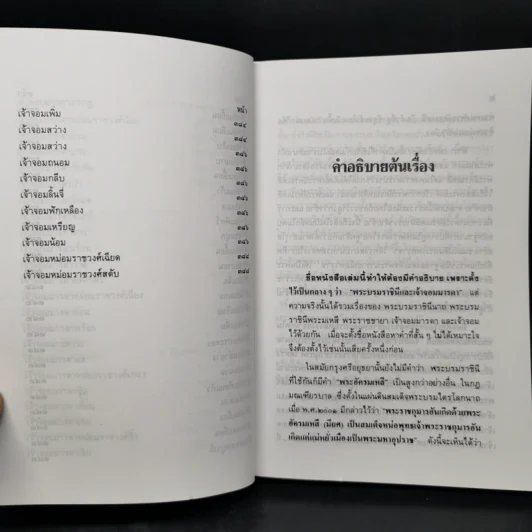 หน้า
เจ้าจอมเพิ่ม ๓๔๔
เจ้าจอมสว่าง ๓๔๔
เจ้าจอมสว่าง ๓๔๖
เจ้าจอมถนอม ๓๔๖
เจ้าจอมกลีบ ๓๔๖
เจ้าจอมลิ้นจี่ ๓๔๖
เจ้าจอมฟักเหลือง ๓๔๖
เจ้าจอมเหรียญ ๓๔๖
เจ้าจอมน้อม ๓๔๖
เจ้าจอมหม่อมราชวงศ์เฉียด
เจ้าจอมหม่อมราชวงศ์สดับ
คำอธิบายต้นเรื่อง
ชื่อหนังสือเล่มนี้ทำให้ต้องมีคำอธิบาย เพราะตั้ง
ไว้เป็นกลาง ๆ ว่า "พระบรมราชินีและเจ้าจอมมารดา" แต่
ความจริงนั้นได้รวมเรื่องของ พระบรมราชินีนาถ พระบรม
ราชินีพระมเหสี พระราชชายา เจ้าจอมมารดา และเจ้าจอม
ไว้ด้วยกัน เมื่อจะตั้งชื่อหนังสือหาคำที่สั้น ๆ ไม่ได้เหมาะใจ
จึงต้องตั้งไว้เช่นนั้นเสียครั้งหนึ่งก่อน
ในสมัยกรุงศรีอยุธยานั้นยังไม่มีคำว่า พระบรมราชินี
ที่ใช้กันก็มีคำว่า "พระอัครมเหสี" เป็นสูงกว่าอย่างอื่น ในกฎ
มณเฑียรบาล ซึ่งตั้งในแผ่นดินสมเด็จพระบรมไตรโลกนาถ
เมื่อ พ.ศ.๒๐๐๑ มีกล่าวไว้ว่า "พระราชกุมารอันเกิดด้วยพระ
อัครมเหสี (มีนามว่า) เป็นสมเด็จหน่อพุทธเจ้าพระราชกุมารอัน
เกิดแต่แม่หยั่วเมืองเป็นพระมหาอุปราช" ดังนี้จะเห็นได้ว่า